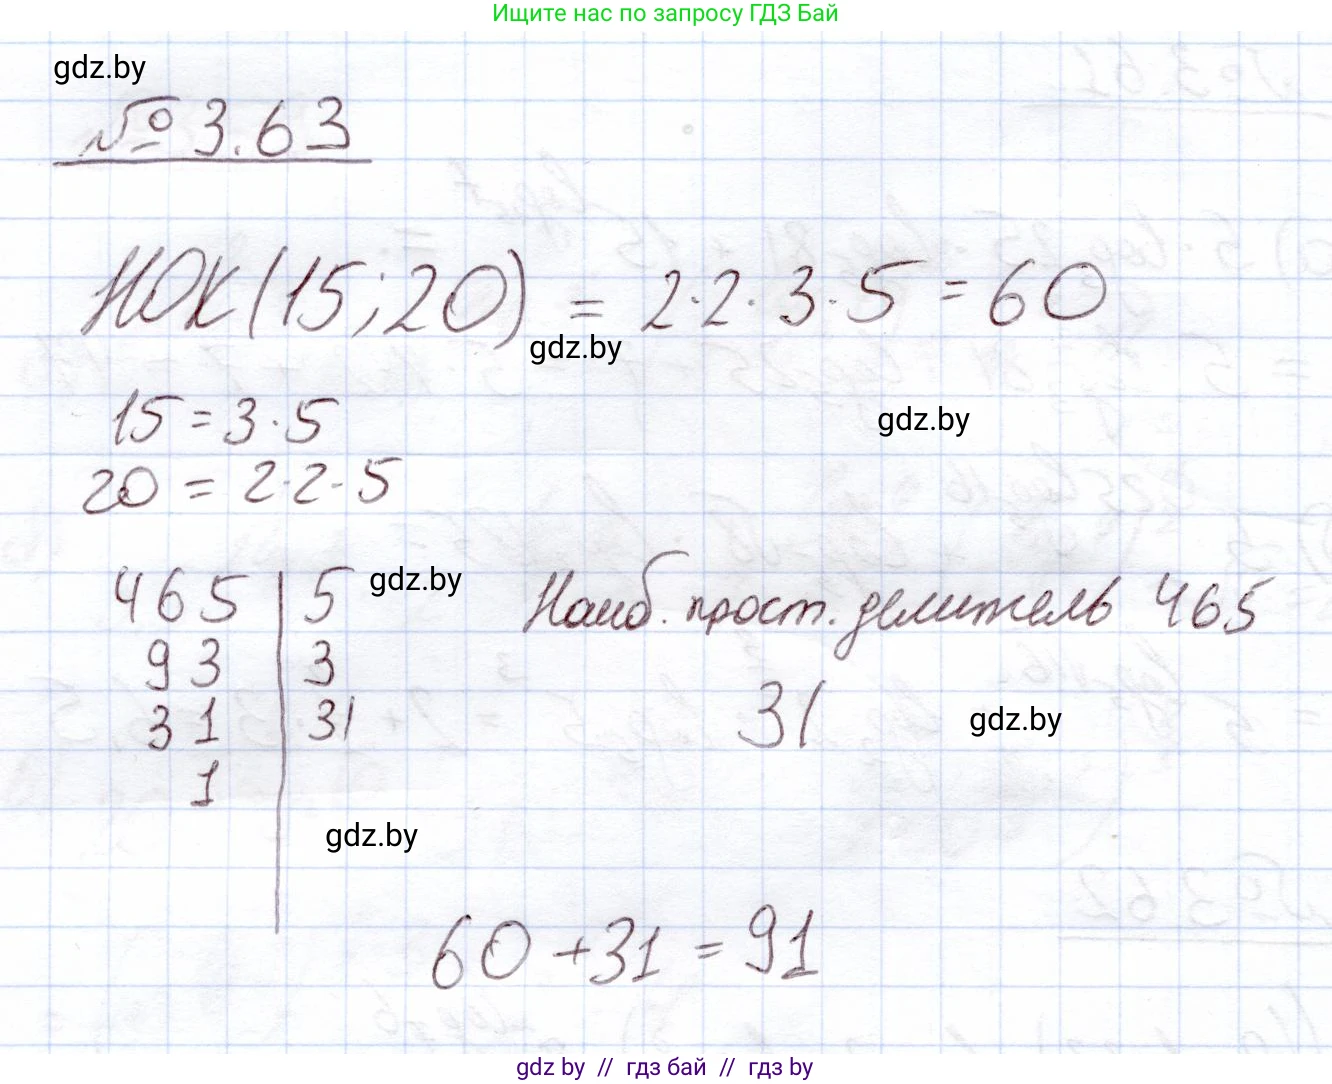 Ищите нас по запросу ГДЗ Бай
gdz.by
№ 3.63
НОК(15;20) = 2·2·3·5 = 60
gdz.by
15 = 3·5
gdz.by
20 = 2·2·5
465 | 5
gdz.by
Наиб. прост. делитель 465
93 | 3
31 | 31
31
gdz.by
1
gdz.by
60 + 31 = 91
gdz by // гдз бай // гдз by